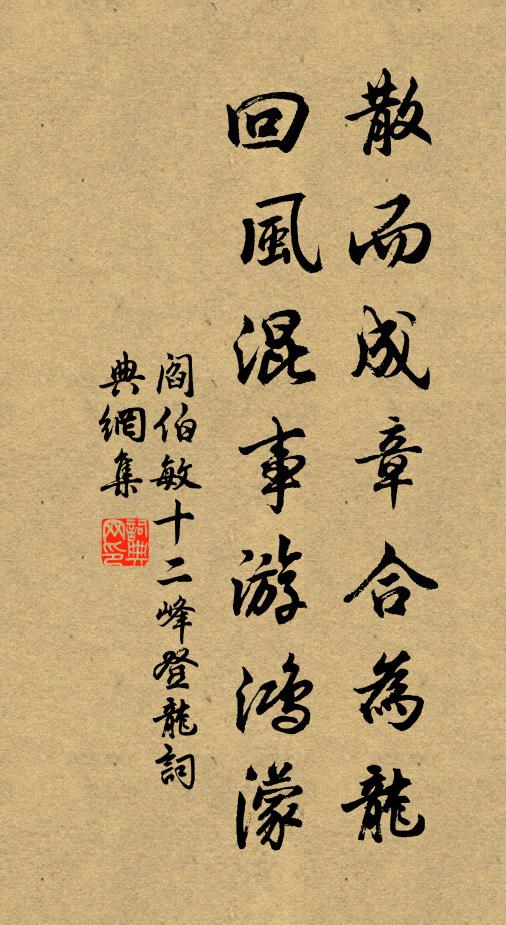 散而成章合為龍
回風混事游鴻濛
閻伯敏十二峰登龍詞
典網集
詞典网印